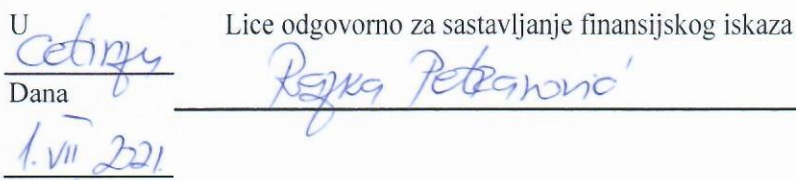 U Lice odgovorno za sastavljanje finansijskog iskaza
Cetinju Rajka Petranović
Dana
1. VII 2021.